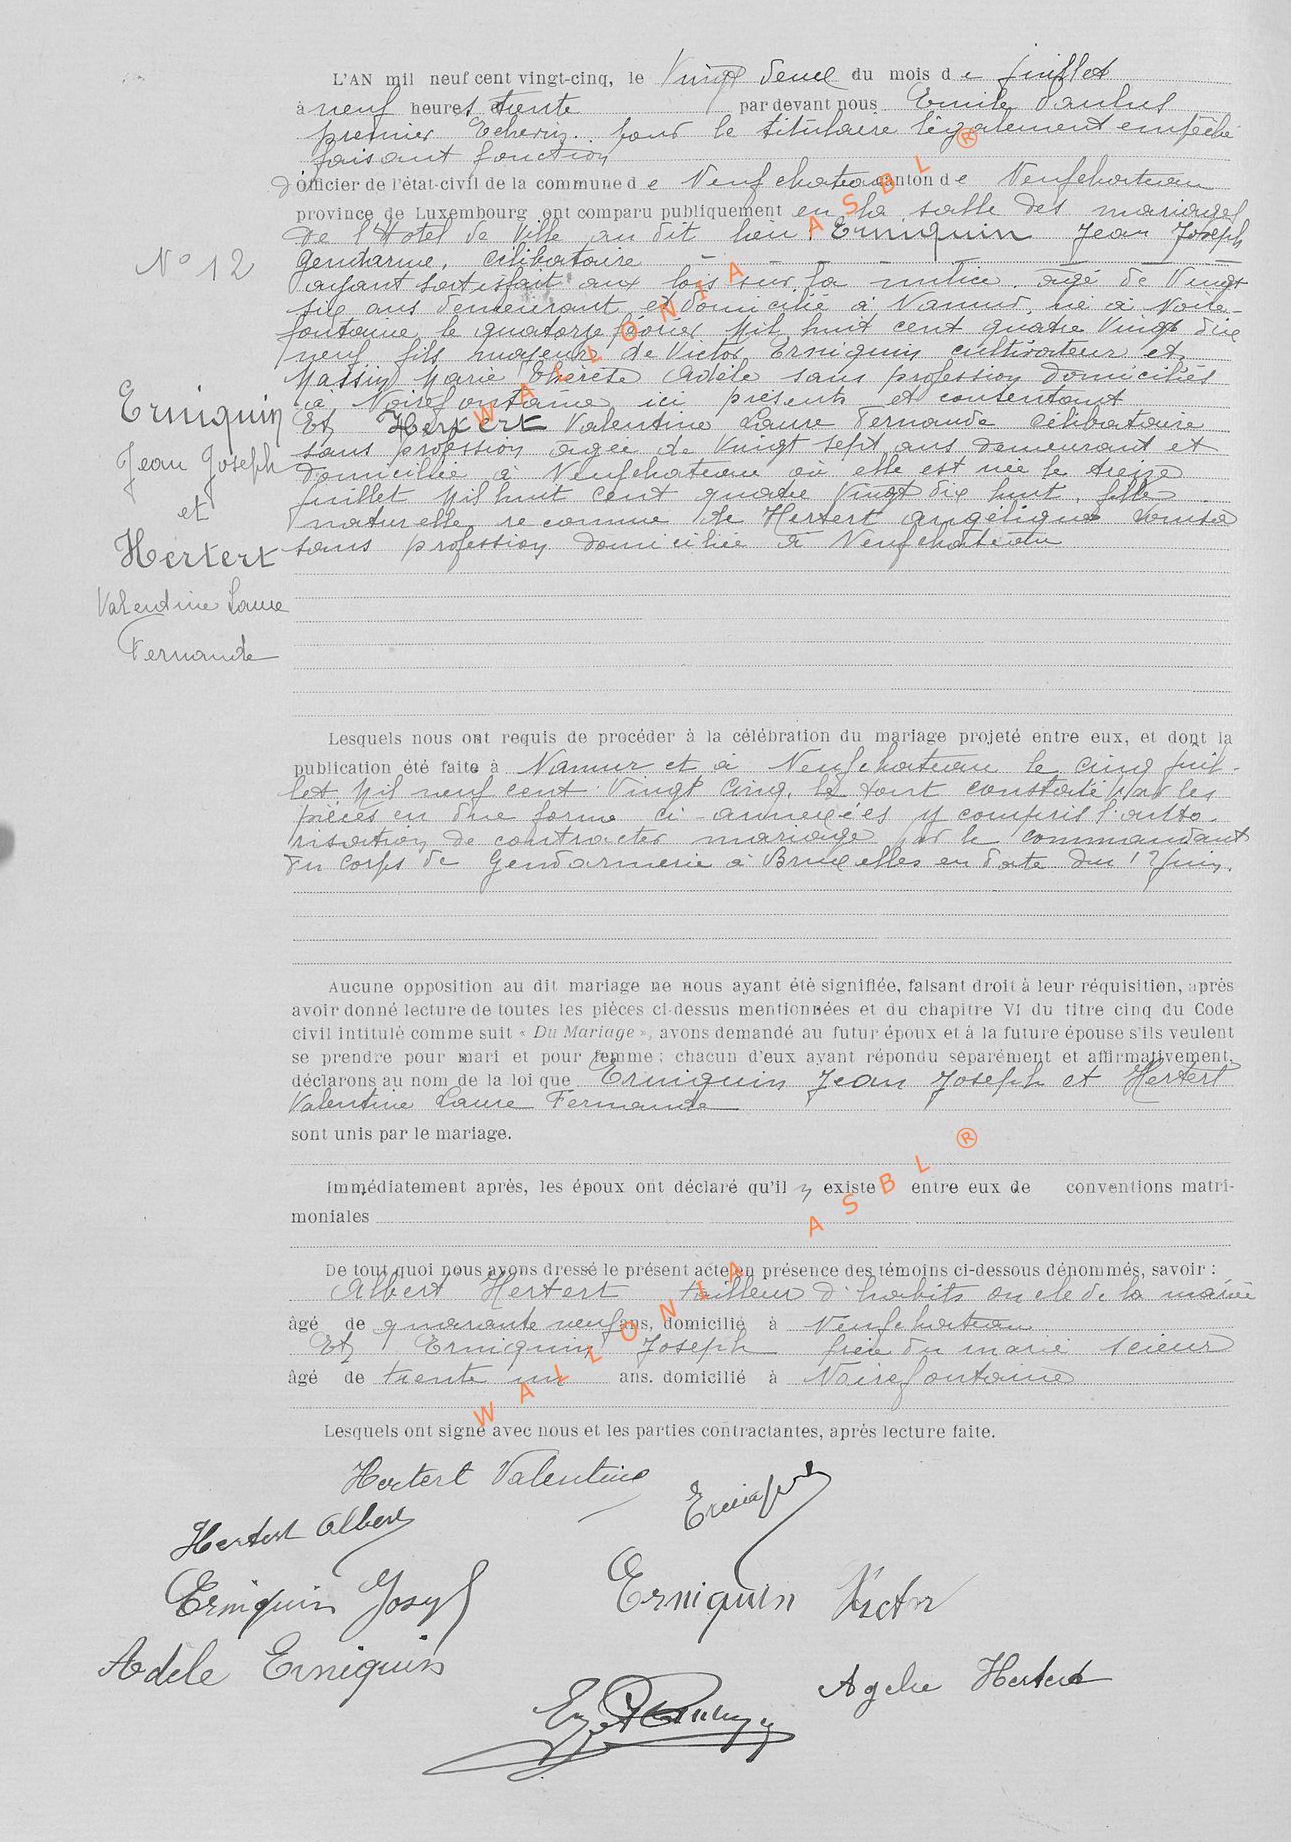 L'AN mil neuf cent vingt-cinq, le Vingt deux du mois de juillet
à neuf heures trente par devant nous Emile Paulus
premier Echevin. pour le titulaire légalement empêché
faisant fonction
d'Officier de l'état-civil de la commune de Neufchateau canton de Neufchateau
province de Luxembourg ont comparu publiquement en la salle des mariages
de l'Hotel de Ville au dit lieu. Erniquin Jean Joseph
N° 12
Gendarme, célibataire
ayant satisfait aux lois sur la milice. agé de Vingt
six ans demeurant et domicilié à Namur, né à Noire-
fontaine le quatorze février Mil huit cent quatre Vingt dix
neuf fils majeur de Victor Erniquin cultivateur et
Massin Marie Thérèse Adèle sans profession domiciliés
à Noirefontaine ici présents et consentant
Et Hertert Valentine Laure Fernande célibataire
sans profession agée de Vingt sept ans demeurant et
domiciliée à Neufchateau où elle est née le treize
juillet Mil huit cent quatre Vingt dix huit, fille
naturelle reconnue de Hertert Angélique Louise
sans profession domiciliée à Neufchateau
Erniquin
Jean Joseph
et
Hertert
Valentine Laure
Fernande
Lesquels nous ont requis de procéder à la célébration du mariage projeté entre eux, et dont la
publication été faite à Namur et à Neufchateau le cinq juil-
let Mil neuf cent Vingt cinq, le tout constaté par les
pièces en due forme ci-annexées y compris l'auto-
risation de contracter mariage par le commandant
du corps de Gendarmerie à Bruxelles en date du 12 juin.
Aucune opposition au dit mariage ne nous ayant été signifiée, faisant droit à leur réquisition, après
avoir donné lecture de toutes les pièces ci-dessus mentionnées et du chapitre VI du titre cinq du Code
civil intitulé comme suit « Du Mariage », avons demandé au futur époux et à la future épouse s'ils veulent
se prendre pour mari et pour femme ; chacun d'eux ayant répondu séparément et affirmativement,
déclarons au nom de la loi que Erniquin Jean Joseph et Hertert
Valentine Laure Fernande
sont unis par le mariage.
Immédiatement après, les époux ont déclaré qu'il y existe entre eux de conventions matri-
moniales
De tout quoi nous avons dressé le présent acte en présence des témoins ci-dessous dénommés, savoir :
Albert Hertert tailleur d'habits oncle de la mariée
âgé de quarante neuf ans, domicilié à Neufchateau
Et Erniquin Joseph frère du marié scieur
âgé de trente un ans. domicilié à Noirefontaine
Lesquels ont signé avec nous et les parties contractantes, après lecture faite.
Hertert Valentine
Erniquin
Hertert Albert
Erniquin Joseph
Erniquin Victor
Adèle Erniquin
Hertert
WALLONIA ASBL ®
WALLONIA ASBL ®